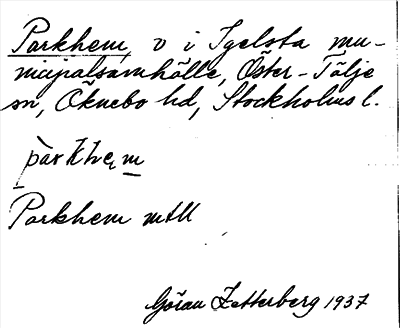 Parkhem, v i Igelsta mu-
nicipalsamhälle, Öster-Tälje
sn, Öknebo hd, Stockholms l.
Parkhem mtll
Göran Zetterberg 1937